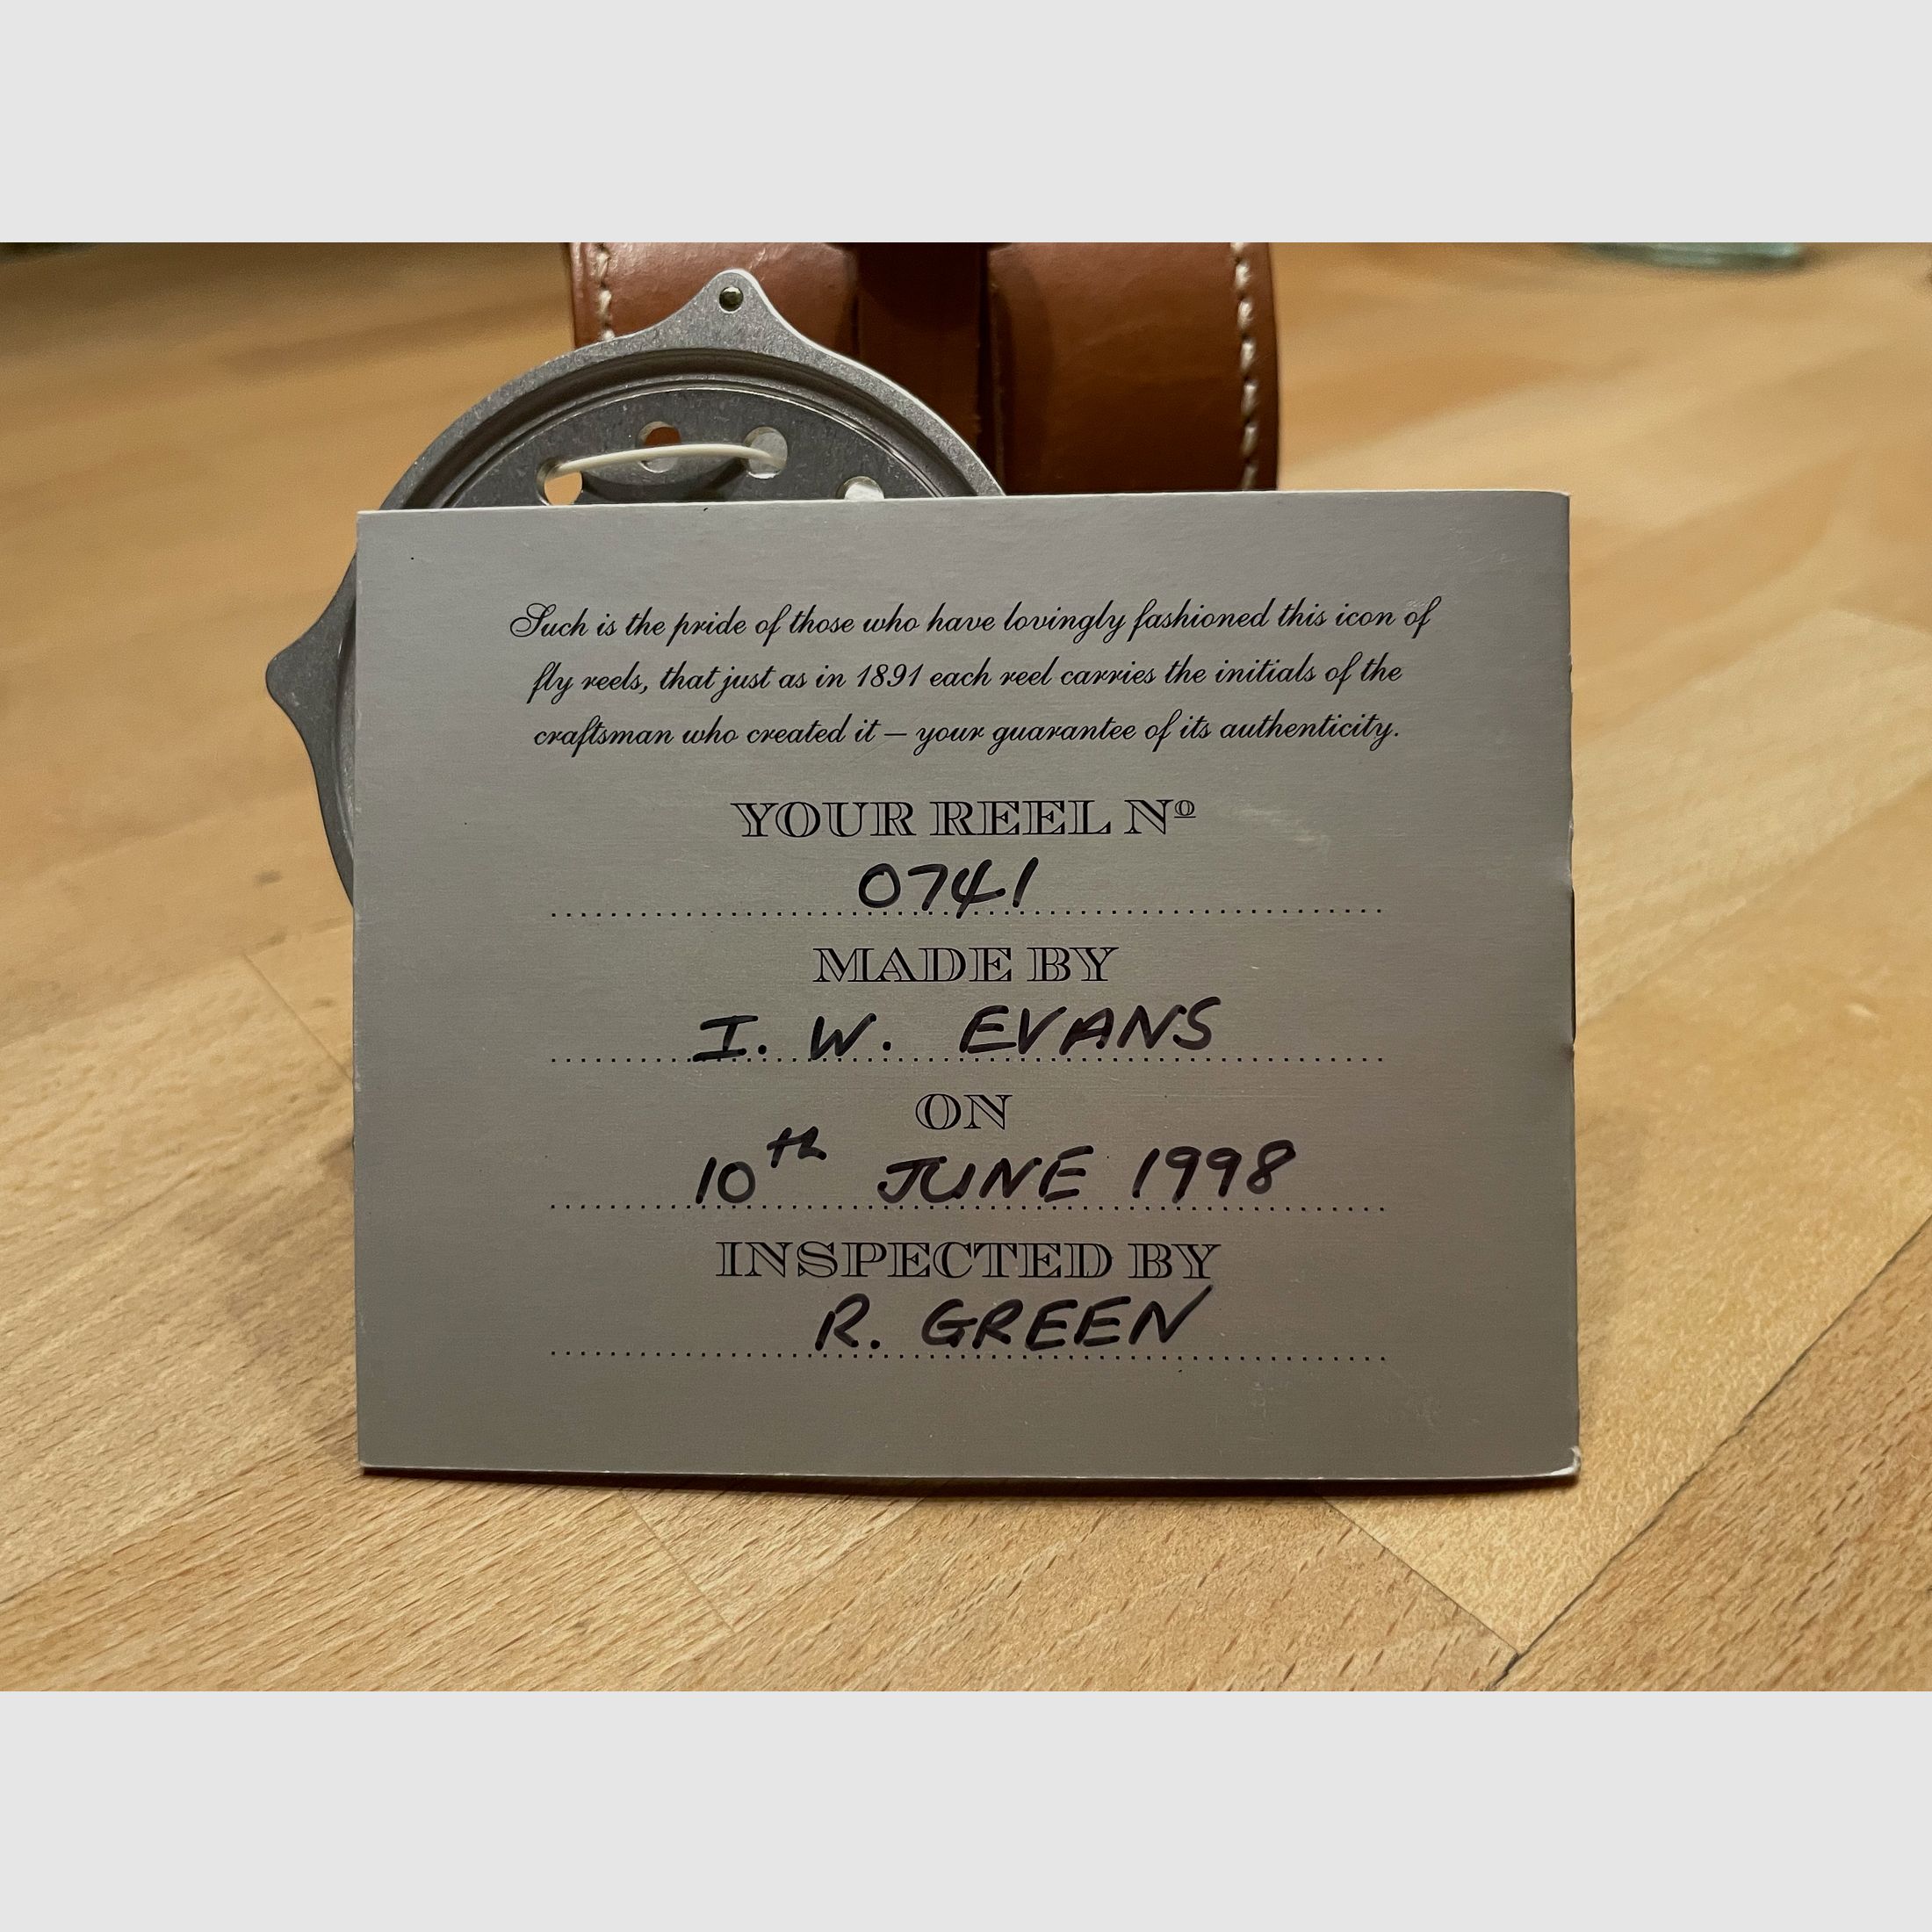 Such is the pride of those who have lovingly fashioned this icon of
fly reels, that just as in 1891 each reel carries the initials of the
craftsman who created it – your guarantee of its authenticity.
YOUR REEL Nº
0741
MADE BY
I. W. EVANS
ON
10th JUNE 1998
INSPECTED BY
R. GREEN